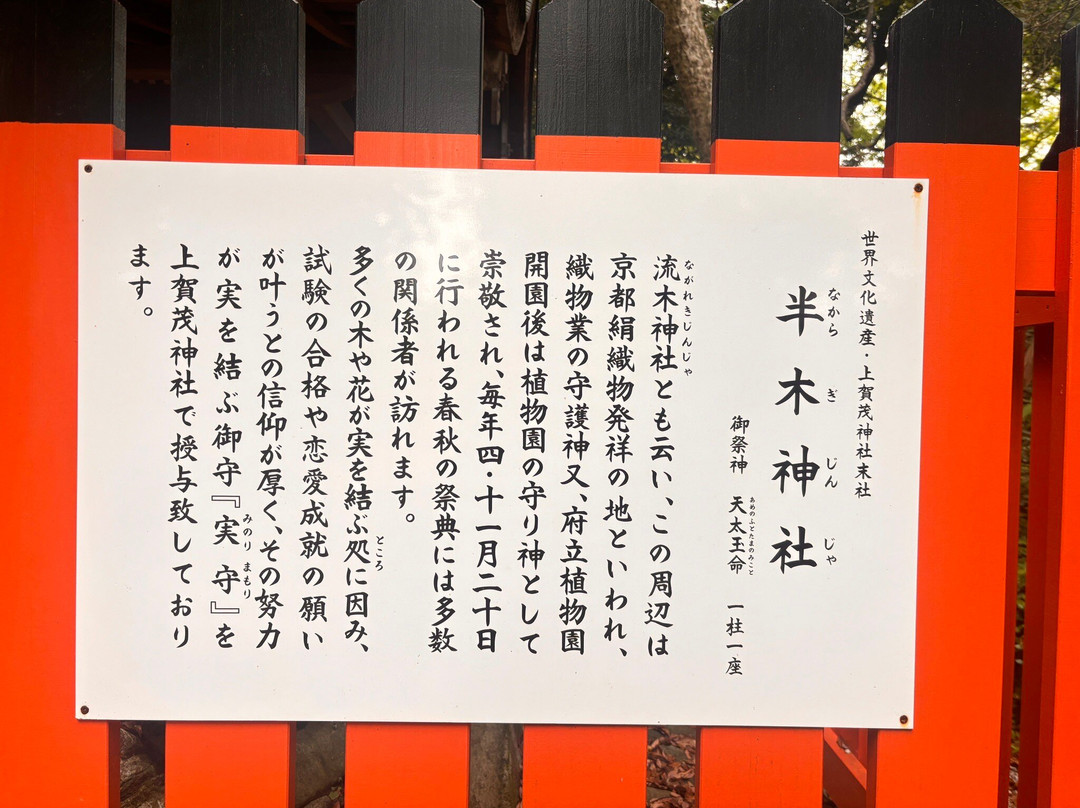 世界文化遺産・上賀茂神社末社
半木神社
なからぎじんじゃ
御祭神 天太玉命 一柱一座
あめのふとたまのみこと
流木神社とも云い、この周辺は
ながれきじんじゃ
京都絹織物発祥の地といわれ、
織物業の守護神又、府立植物園
開園後は植物園の守り神として
崇敬され、毎年四・十一月二十日
に行われる春秋の祭典には多数
の関係者が訪れます。
多くの木や花が実を結ぶ処に因み、
ところ
試験の合格や恋愛成就の願い
が叶うとの信仰が厚く、その努力
が実を結ぶ御守『実守』を
みのりまもり
上賀茂神社で授与致しており
ます。